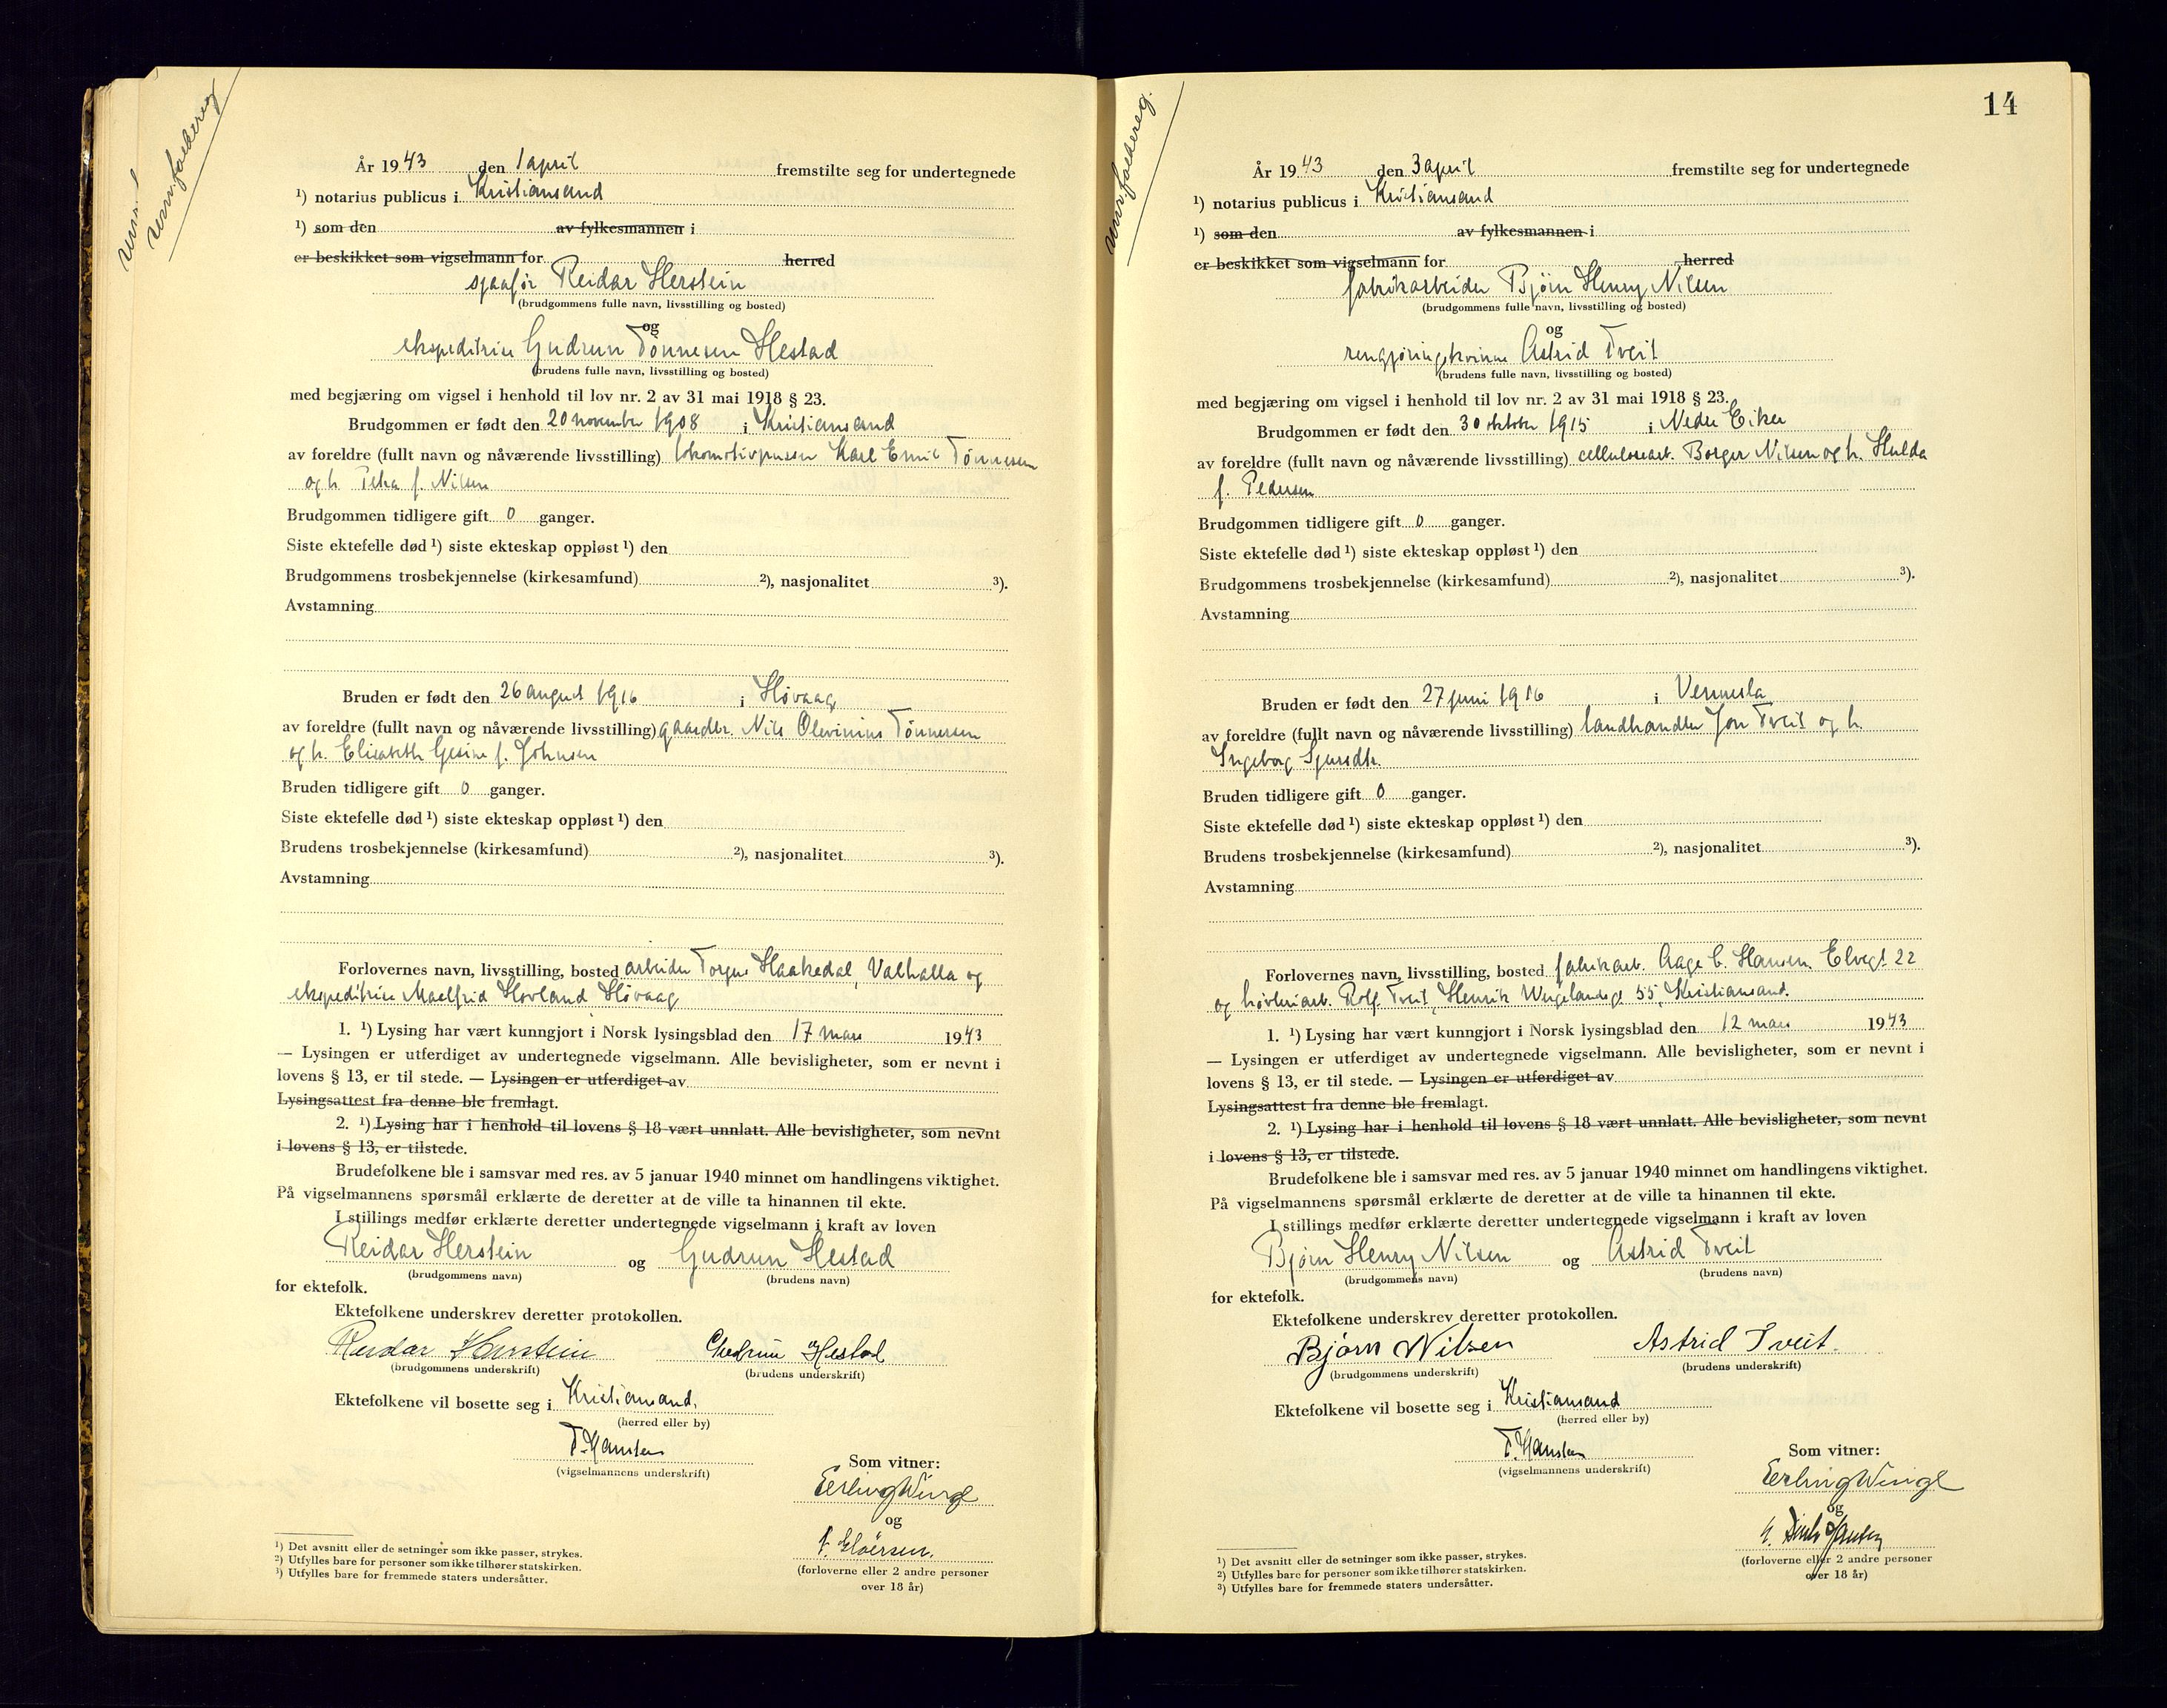 År 1943 den 1 april fremstilte seg for undertegnede
¹) notarius publicus i Kristiansand
¹) som den av fylkesmannen i
er beskikket som vigselmann for herred
sjaafør Reidar Herstein
(brudgommens fulle navn, livsstilling og bosted)
og
ekspeditrise Gudrun Tønnesen Hestad
(brudens fulle navn, livsstilling og bosted)
med begjæring om vigsel i henhold til lov nr. 2 av 31 mai 1918 § 23.
Brudgommen er født den 20 november 1908 i Kristiansand
av foreldre (fullt navn og nåværende livsstilling) lokomotivpusser Karl Emil Tønnesen
og h. Petra f. Nilsen
Brudgommen tidligere gift 0 ganger.
Siste ektefelle død ¹) siste ekteskap oppløst ¹) den
Brudgommens trosbekjennelse (kirkesamfund) ²), nasjonalitet ³).
Avstamning
Bruden er født den 26 august 1916 i Høvaag
av foreldre (fullt navn og nåværende livsstilling) gaardbr. Nils Olevinius Tønnesen
og h. Elisabeth Gesine f. Johnsen
Bruden tidligere gift 0 ganger.
Siste ektefelle død ¹) siste ekteskap oppløst ¹) den
Brudens trosbekjennelse (kirkesamfund) ²), nasjonalitet ³).
Avstamning
Forlovernes navn, livsstilling, bosted arbeider Haakedal, Valhalla og
ekspeditrise Hovland Høvaag
1. ¹) Lysing har vært kunngjort i Norsk lysingsblad den 17 mars 1943
— Lysingen er utferdiget av undertegnede vigselmann. Alle bevisligheter, som er nevnt i
lovens § 13, er til stede. — Lysingen er utferdiget av
Lysingsattest fra denne ble fremlagt.
2. ¹) Lysing har i henhold til lovens § 18 vært unnlatt. Alle bevisligheter, som nevnt
i lovens § 13, er tilstede.
Brudefolkene ble i samsvar med res. av 5 januar 1940 minnet om handlingens viktighet.
På vigselmannens spørsmål erklærte de deretter at de ville ta hinannen til ekte.
I stillings medfør erklærte deretter undertegnede vigselmann i kraft av loven
Reidar Herstein og Gudrun Hestad
(brudgommens navn) (brudens navn)
for ektefolk.
Ektefolkene underskrev deretter protokollen.
Reidar Herstein Gudrun Hestad
(brudgommens underskrift) (brudens underskrift)
Ektefolkene vil bosette seg i Kristiansand.
(herred eller by)
T. Hansten
(vigselmannens underskrift)
Som vitner:
Erling Winge
og
(forloverne eller 2 andre personer
over 18 år)
¹) Det avsnitt eller de setninger som ikke passer, strykes.
²) Utfylles bare for personer som ikke tilhører statskirken.
³) Utfylles bare for fremmede staters undersåtter.
14
År 1943 den 3 april fremstilte seg for undertegnede
¹) notarius publicus i Kristiansand
¹) som den av fylkesmannen i
er beskikket som vigselmann for herred
fabrikarbeider Bjørn Henry Nilsen
(brudgommens fulle navn, livsstilling og bosted)
og
rengjøringskvinne Astrid Tveit
(brudens fulle navn, livsstilling og bosted)
med begjæring om vigsel i henhold til lov nr. 2 av 31 mai 1918 § 23.
Brudgommen er født den 30 oktober 1915 i Nedre Eiker
av foreldre (fullt navn og nåværende livsstilling) cellulosearb. Borger Nilsen og h. Hulda
f. Pedersen
Brudgommen tidligere gift 0 ganger.
Siste ektefelle død ¹) siste ekteskap oppløst ¹) den
Brudgommens trosbekjennelse (kirkesamfund) ²), nasjonalitet ³).
Avstamning
Bruden er født den 27 juni 1916 i Vennesla
av foreldre (fullt navn og nåværende livsstilling) landhandler Jon Tveit og h.
Ingeborg Sjursdtr.
Bruden tidligere gift 0 ganger.
Siste ektefelle død ¹) siste ekteskap oppløst ¹) den
Brudens trosbekjennelse (kirkesamfund) ²), nasjonalitet ³).
Avstamning
Forlovernes navn, livsstilling, bosted fabrikarb. Aage C. Hansen Elvegt 22
og høvleriarb. Rolf Tveit, Henrik Wergelandsgt. 55, Kristiansand.
1. ¹) Lysing har vært kunngjort i Norsk lysingsblad den 12 mars 1943
— Lysingen er utferdiget av undertegnede vigselmann. Alle bevisligheter, som er nevnt i
lovens § 13, er til stede. — Lysingen er utferdiget av
Lysingsattest fra denne ble fremlagt.
2. ¹) Lysing har i henhold til lovens § 18 vært unnlatt. Alle bevisligheter, som nevnt
i lovens § 13, er tilstede.
Brudefolkene ble i samsvar med res. av 5 januar 1940 minnet om handlingens viktighet.
På vigselmannens spørsmål erklærte de deretter at de ville ta hinannen til ekte.
I stillings medfør erklærte deretter undertegnede vigselmann i kraft av loven
Bjørn Henry Nilsen og Astrid Tveit
(brudgommens navn) (brudens navn)
for ektefolk.
Ektefolkene underskrev deretter protokollen.
Bjørn Nilsen Astrid Tveit.
(brudgommens underskrift) (brudens underskrift)
Ektefolkene vil bosette seg i Kristiansand
(herred eller by)
T. Hansten
(vigselmannens underskrift)
Som vitner:
Erling Winge
og
(forloverne eller 2 andre personer
over 18 år)
¹) Det avsnitt eller de setninger som ikke passer, strykes.
²) Utfylles bare for personer som ikke tilhører statskirken.
³) Utfylles bare for fremmede staters undersåtter.